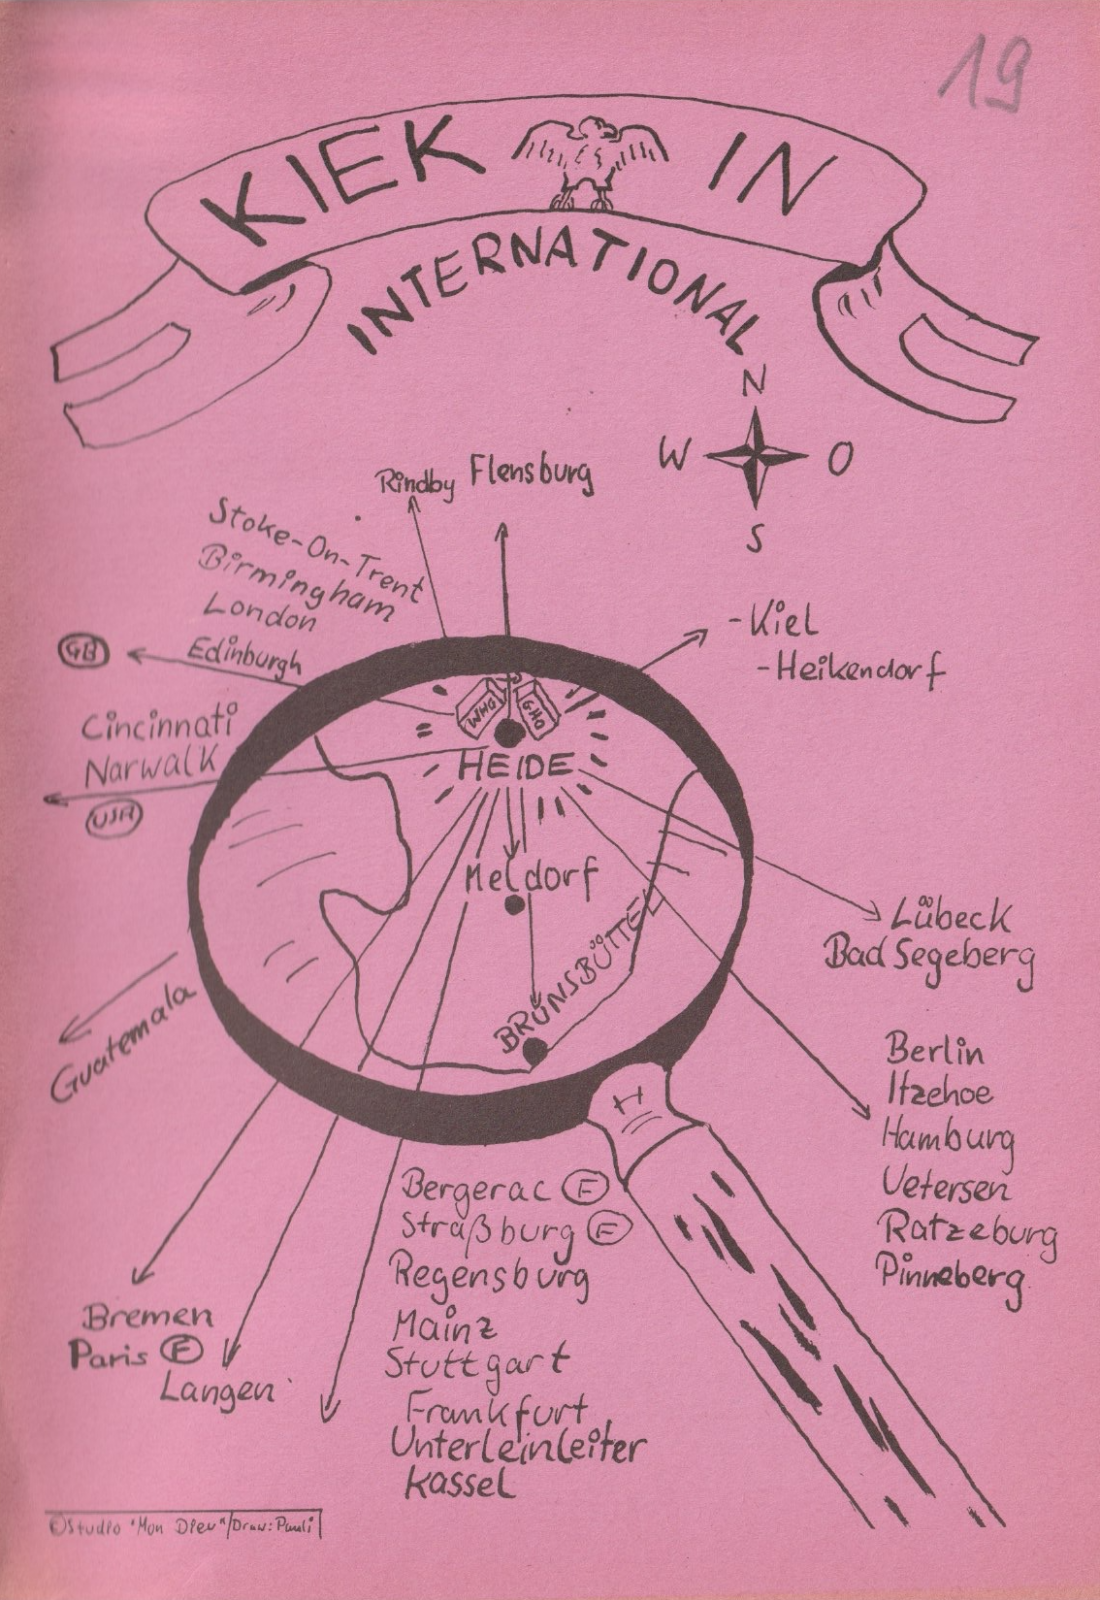 19
KIEK IN
INTERNATIONAL
N
W O
S
Rindby
Flensburg
Stoke-On-Trent
Birmingham
London
Edinburgh
GB
-Kiel
-Heikendorf
Cincinnati
Narwalk
USA
WHG
GHO
HEIDE
Meldorf
BRÜNSBÜTTEL
Lübeck
Bad Segeberg
Guatemala
Berlin
Itzehoe
Hamburg
Uetersen
Ratzeburg
Pinneberg
H
Bergerac F
Straßburg F
Regensburg
Mainz
Stuttgart
Frankfurt
Unterleinleiter
Kassel
Bremen
Paris F
Langen
©Studio "Mon Dieu"/Draw: Pauli